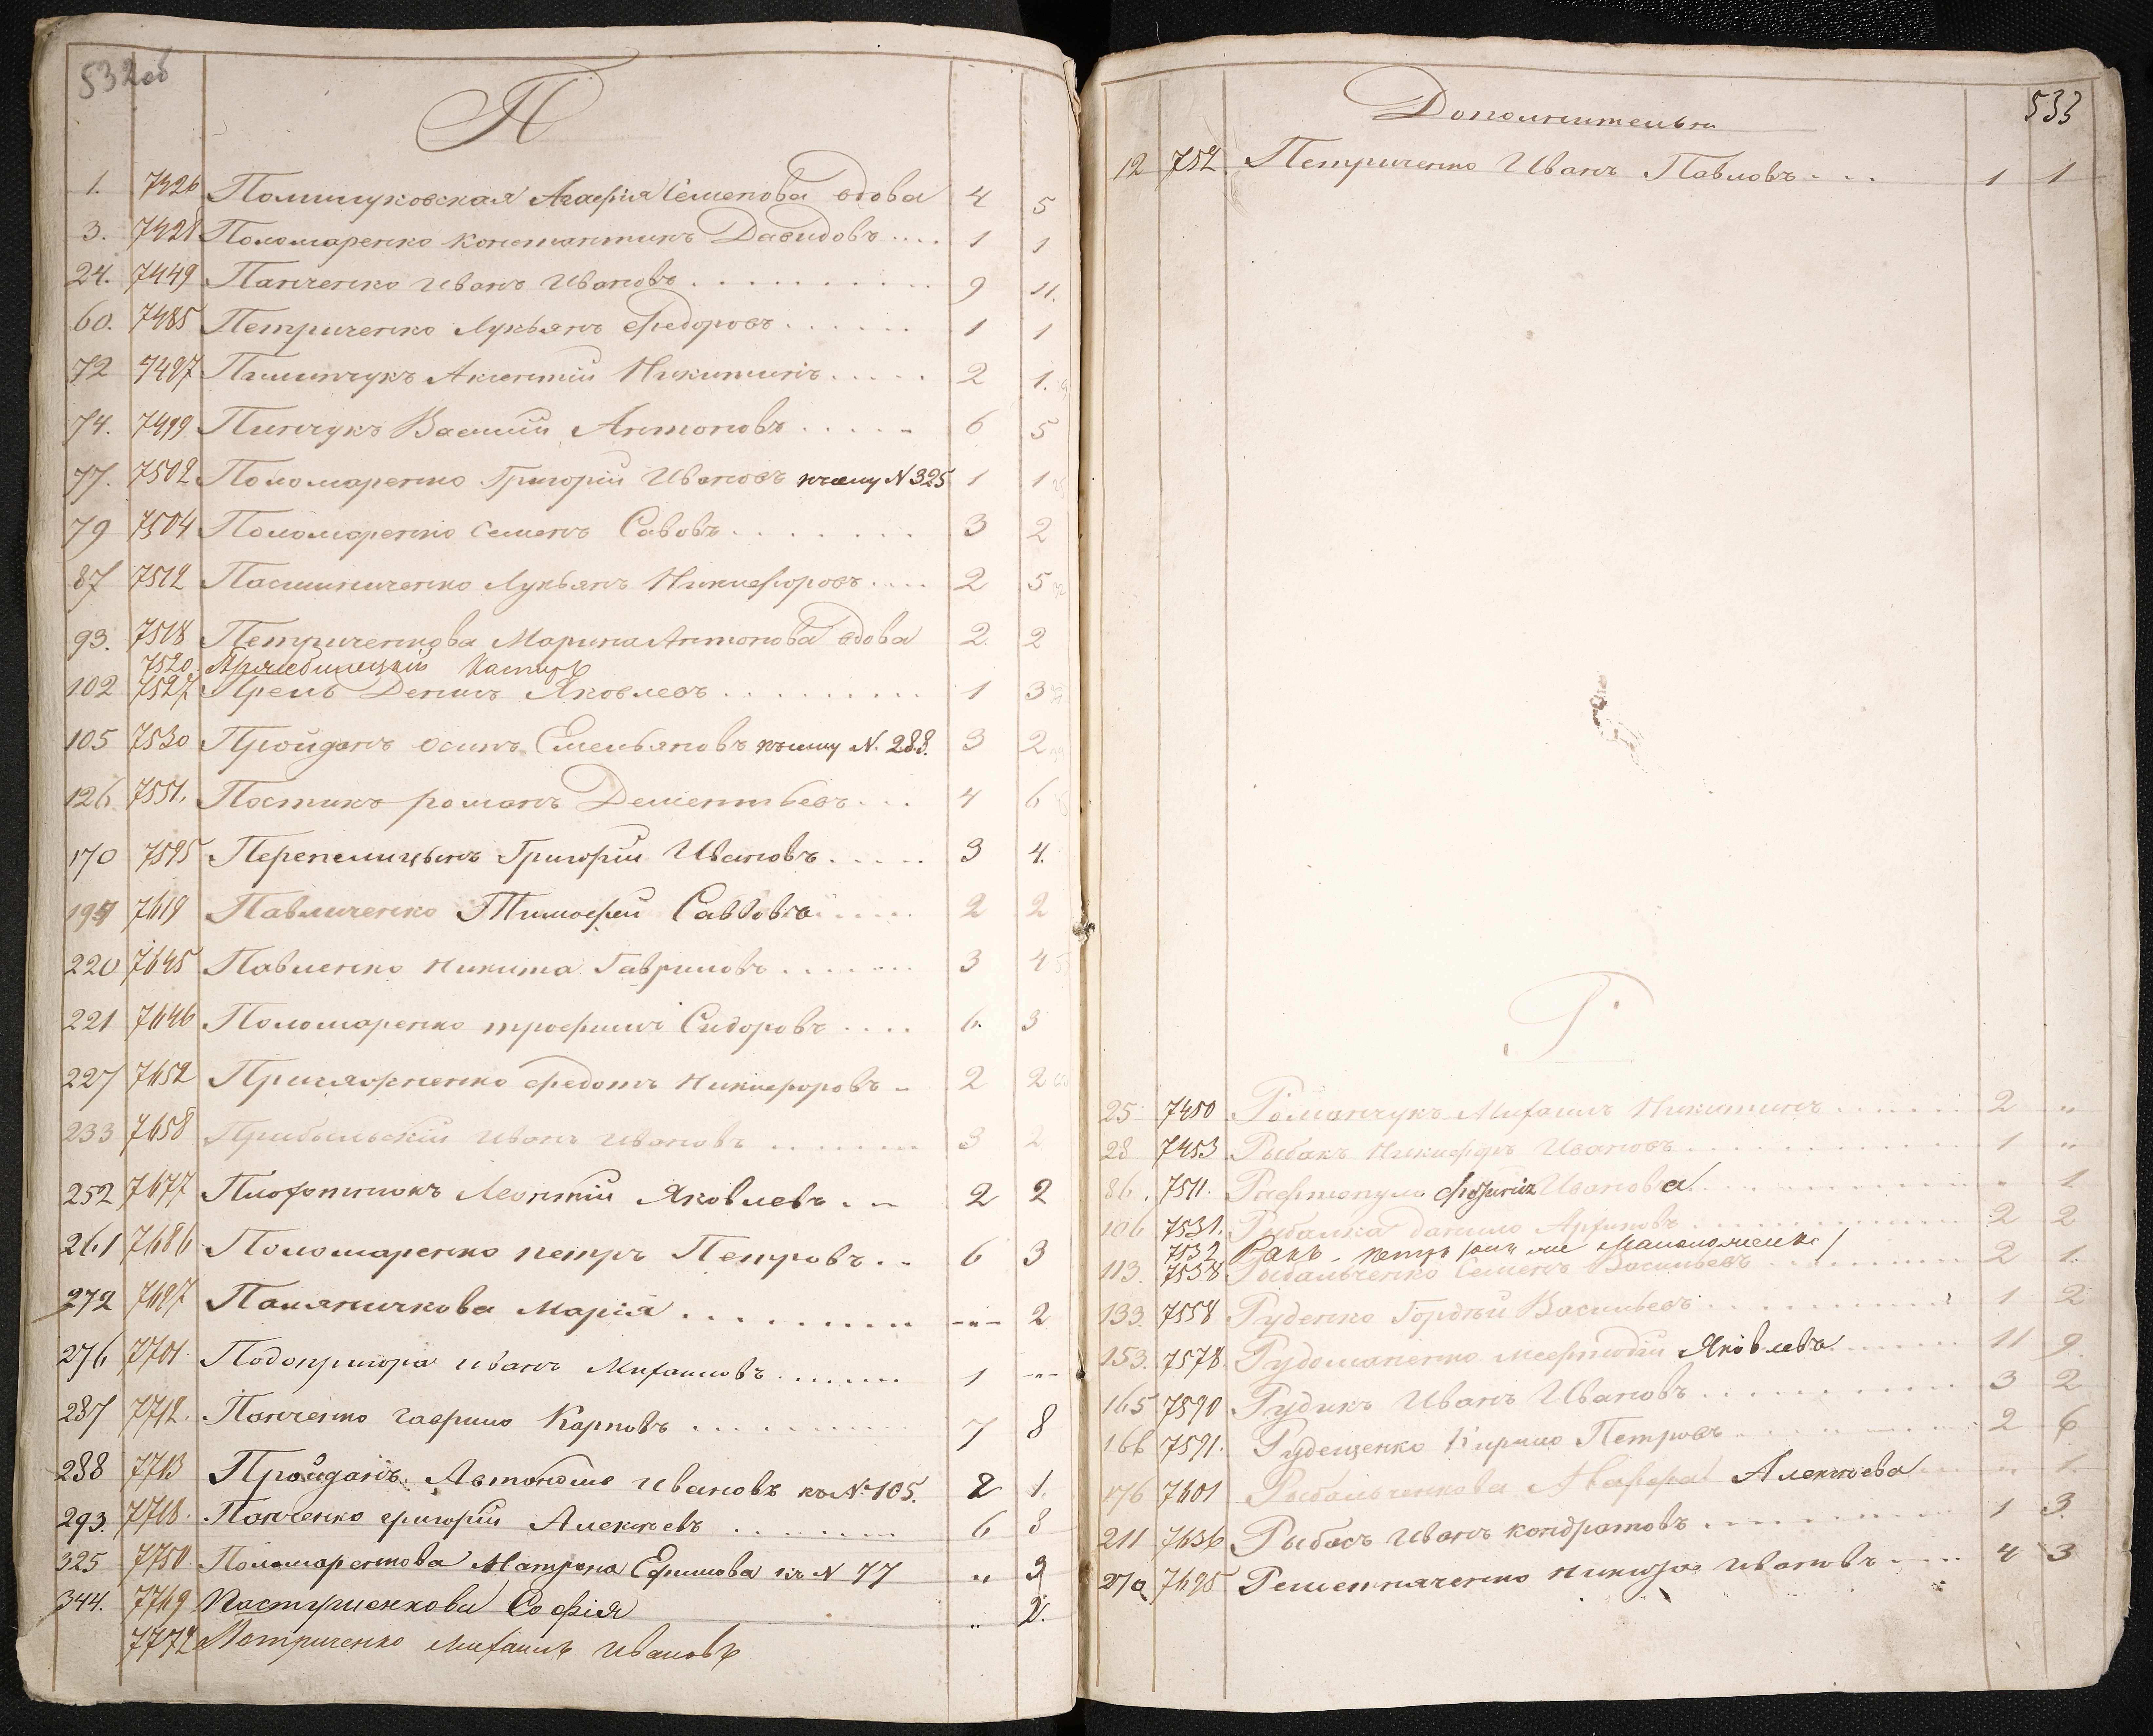 532 об
П
1. 7426 Полищуковская Агафія Семенова вдова 4 5
3. 7428 Поломаренко Константинъ Давидовъ .... 1 1
24. 7449 Панченко Иванъ Ивановъ 9 11.
60. 7485 Петриченко Лукьянъ Федоровъ 1 1
72 7497 Пилипчукъ Аксентій Никитинъ 2 1.
74. 7499 Пинчукъ Василій Антоновъ 6 5
77. 7502 Поломаренко Григорій Ивановъ N 325 1 1
79 7504 Поломаренко Семенъ Савовъ 3 2
87 7512 Пасишниченко Лукьянъ Никифоровъ 2 5
93. 7518 Петриченкова Марина Антонова вдова 2. 2
7520
102 7527 Прель Денисъ Яковлевъ 1 3
105 7530 Пройданъ Осипъ Емельяновъ N. 288. 3 2
126. 7551. Постикъ Романъ Дементьевъ 4 6
170 7595 Перепелицынъ Григорій Ивановъ 3 4.
7619 Павличенко Тимофей Саввовъ 2 2
220 7645 Павленко Никита Гавриловъ 3 4
221 7646 Поломаренко Трофимъ Сидоровъ 6. 3
227 7652 Федотъ Никифоровъ 2 2
233 7658 Прибыльскій Иванъ Ивановъ 3 2
252 7677 Леонтій Яковлевъ 2 2
261 7686 Поломаренко Петръ Петровъ 6 3
272 7697 Паляничкова Марія 2
276 7701 Подопригора Иванъ Михайловъ 1
287 7712. Панченко Гаврило Карповъ 7 8
288 7713 Пройданъ Автономъ Ивановъ къ № 105. 2 1.
293. 7718. Панченко Григорій Алексѣевъ 6 8
325 7750 Поломаренкова Матрона Ефимова къ N 77 " 3
344. 7769 Пастушенкова Софія " 2.
7772 Петриченко Михаилъ Ивановъ
533
Дополнительно
12 752. Петриченко Иванъ Павловъ 1 1
Р
25 7450 Романчукъ Михаилъ Никитинъ 2 "
28 7453 Рыбакъ Никифоръ Ивановъ 1 "
86. 7511. Ивановa " 1
106 7531. Рыбалка Данило Архиповъ 2 2
7532 Ракъ Петръ
113. 7538 Рыбальченко Семенъ Васильевъ 2 1.
133. 7558 Руденко Гордѣй Васильевъ 1 2
153. 7578. Рудоманенко Мефтодій Яковлевъ 11 9.
165 7590 Рудикъ Иванъ Ивановъ 3 2
166 7591. Рудещенко Кирило Петровъ 2 6
176 7601 Рыбальченкова Марфа Алексѣева " 1.
211 7636 Рыбасъ Иванъ Кондратовъ 1 3.
270 7695 Решетняченко Ивановъ 4 3